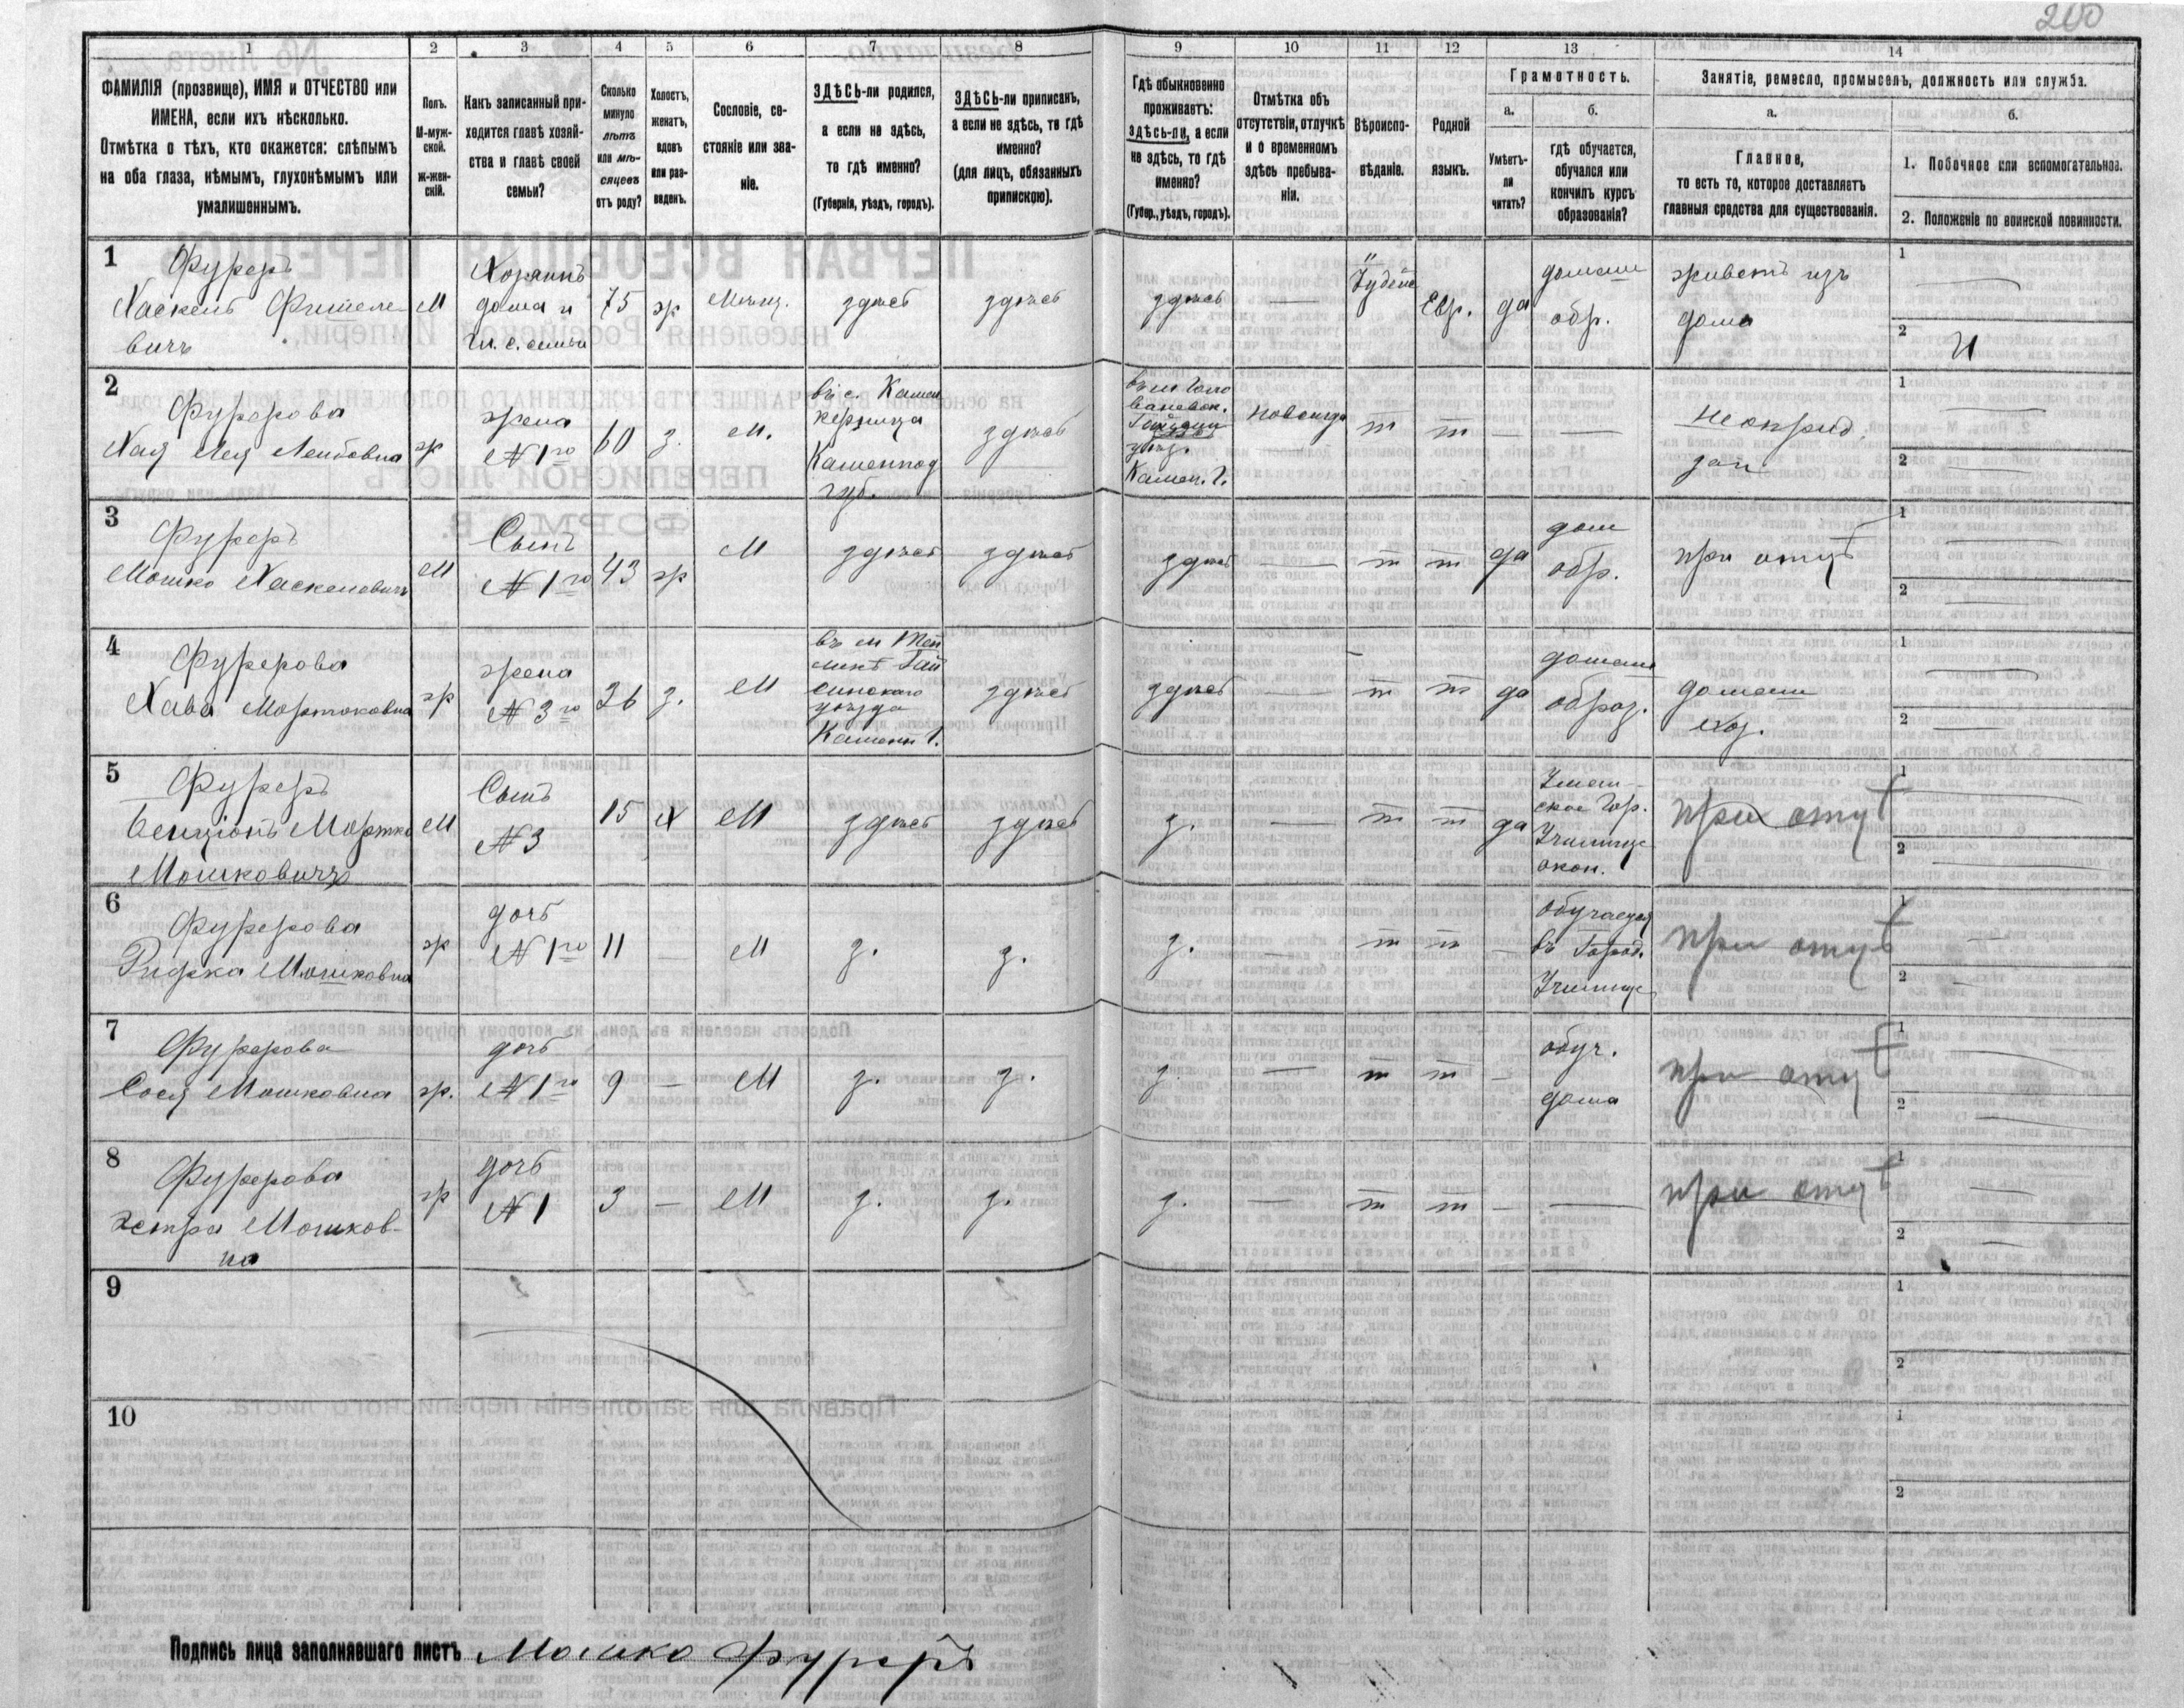 200
1 2 3 4 5 6 7 8 9 10 11 12 13 14
ФАМИЛІЯ (прозвище), ИМЯ и ОТЧЕСТВО или
ИМЕНА, если ихъ нѣсколько.
Отмѣтка о тѣхъ, кто окажется: слѣпымъ
на оба глаза, нѣмымъ, глухонѣмымъ или
умалишеннымъ.
Полъ.
М-муж-
ской.
Ж-жен-
скій.
Какъ записанный при-
ходится главѣ хозяй-
ства и главѣ своей
семьи?
Сколько
минуло
лѣтъ
или мѣ-
сяцевъ
отъ роду?
Холостъ,
женатъ,
вдовъ
или раз-
веденъ.
Сословіе, со-
стояніе или зва-
ніе.
ЗДѢСЬ-ли родился,
а если не здѣсь,
то гдѣ именно?
(Губернія, уѣздъ, городъ).
ЗДѢСЬ-ли приписанъ,
а если не здѣсь, то гдѣ
именно?
(для лицъ, обязанныхъ
припискою).
Гдѣ обыкновенно
проживаетъ:
здѣсь-ли, а если
не здѣсь, то гдѣ
именно?
(Губер., уѣздъ, городъ).
Отмѣтка объ
отсутствіи, отлучкѣ
и о временномъ
здѣсь пребыва-
ніи.
Вѣроиспо-
вѣданіе.
Родной
языкъ.
Грамотность.
а.
Умѣетъ-
ли
читать?
б.
гдѣ обучается,
обучался или
кончилъ курсъ
образованія?
Занятіе, ремесло, промыселъ, должность или служба.
а.
Главное,
то есть то, которое доставляетъ
главныя средства для существованія.
б.
1. Побочное или вспомогательное.
2. Положеніе по воинской повинности.
1
Фуреръ
Хаскель Фишеле-
вичъ
М
Хозяинъ
дома и
гл. с. семьи
75
ж
Мѣщ.
здѣсь
здѣсь
здѣсь
—
Іудейс
Евр.
да
домаш
обр.
живетъ изъ
дома
1 —
2
2
Фурерова
Хая Лея Лейбовна
ж
жена
№ 1го
60
з.
М.
въ с. Камен
Каменпод
губ.
здѣсь
уѣзд.
Камен. Г.
т
т
—
—
зан
1 —
2 —
3
Фуреръ
Мошко Хаскелевичъ
М
Сынъ
№ 1го
43
ж
М
здѣсь
здѣсь
здѣсь
—
т
т
да
дом
обр.
при отцѣ
1 —
2 —
4
Фурерова
Хава Мортковна
ж
жена
№ 3го
36
з.
М
въ м Теп
ликѣ Гай
синскаго
уѣзда
Каменп Г.
здѣсь
здѣсь
—
т
т
да
домашн
образ.
домашн
хоз.
1 —
2 —
5
Фуреръ
Бенціонъ Мортко
Мошковичъ
М
Сынъ
№ 3
15
х
М
здѣсь
здѣсь
з.
—
т
т
да
ское Гор.
Училище
окон.
при отцѣ
1 —
2 —
6
Фурерова
Рифка Мошковна
ж
дочь
№ 1го
11
—
М
з.
з.
з.
—
т
т
—
обучается
въ Город.
Училище
при отцѣ
1 —
2 —
7
Фурерова
Сося Мошковна
ж.
дочь
№ 1го
9
—
М
з.
з.
з.
—
т
т
—
обуч.
дома
при отцѣ
1 —
2 —
8
Фурерова
Эстра Мошков-
на
ж
дочь
№ 1
3
—
М
з.
з.
з.
—
т
т
—
—
при отцѣ
1 —
2 —
9
1
2
10
1
2
Подпись лица заполнявшаго листъ Мошко Фуреръ